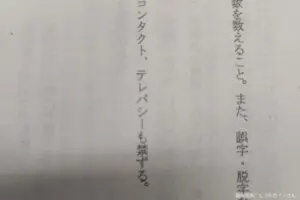 数を数えること。また、誤字・脱字
コンタクト、テレパシーも禁ずる。